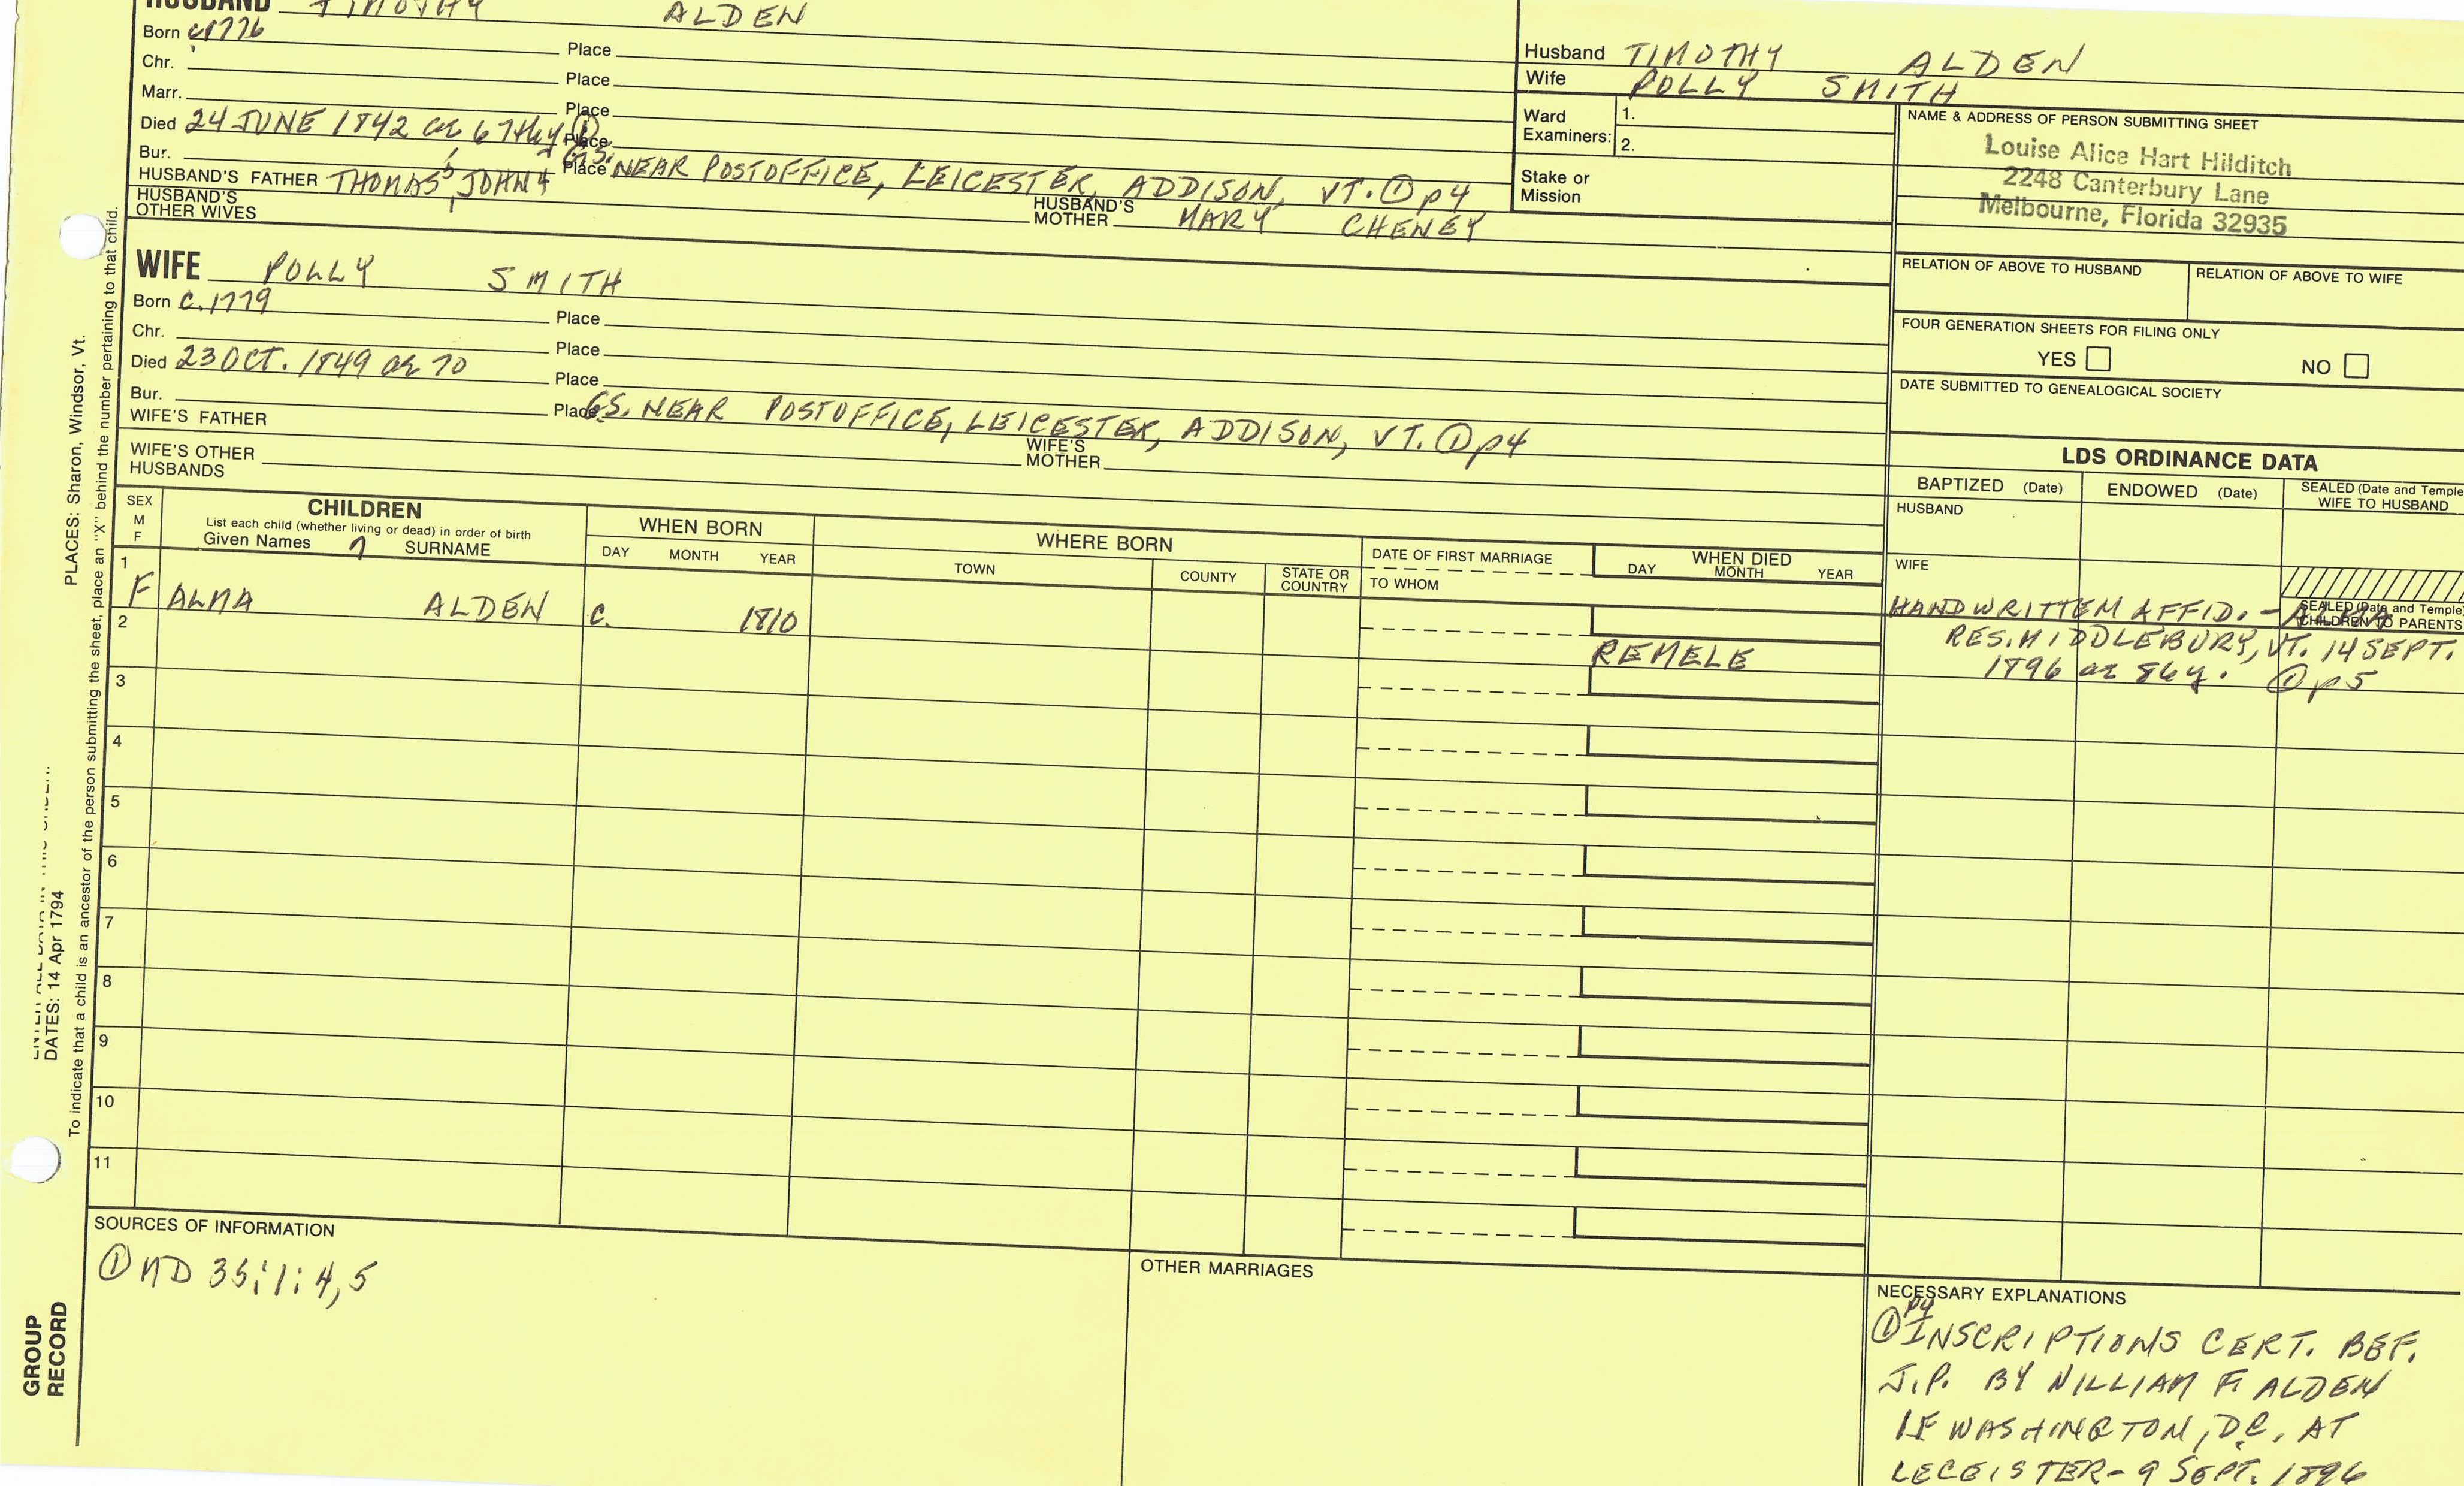 HUSBAND TIMOTHY ALDEN
Born c1776 Place
Chr. Place
Marr. Place
Died 24 JUNE 1842 ae 67th y ① Place
Bur. Place G.S. NEAR POSTOFFICE, LEICESTER, ADDISON, VT. ① p4
HUSBAND'S FATHER THOMAS5, JOHN4 HUSBAND'S MOTHER MARY CHENEY
HUSBAND'S OTHER WIVES
Husband TIMOTHY ALDEN
Wife POLLY SMITH
Ward Examiners: 1.
2.
Stake or Mission
NAME & ADDRESS OF PERSON SUBMITTING SHEET
Louise Alice Hart Hilditch
2248 Canterbury Lane
Melbourne, Florida 32935
RELATION OF ABOVE TO HUSBAND RELATION OF ABOVE TO WIFE
FOUR GENERATION SHEETS FOR FILING ONLY
YES NO
DATE SUBMITTED TO GENEALOGICAL SOCIETY
WIFE POLLY SMITH
Born c.1779 Place
Chr. Place
Died 23 OCT. 1849 ae 70 Place
Bur. Place G.S. NEAR POSTOFFICE, LEICESTER, ADDISON, VT. ① p4
WIFE'S FATHER WIFE'S MOTHER
WIFE'S OTHER HUSBANDS
LDS ORDINANCE DATA
BAPTIZED (Date) ENDOWED (Date) SEALED (Date and Temple) WIFE TO HUSBAND
HUSBAND
WIFE
SEALED (Date and Temple) CHILDREN TO PARENTS
SEX M F
CHILDREN
List each child (whether living or dead) in order of birth
Given Names 7 SURNAME
WHEN BORN
DAY MONTH YEAR
WHERE BORN
TOWN COUNTY STATE OR COUNTRY
DATE OF FIRST MARRIAGE
TO WHOM
WHEN DIED
DAY MONTH YEAR
1 F ALMA ALDEN c. 1810
REMELE
HANDWRITTEN AFFID. - ALMA
RES. MIDDLEBURY, VT. 14 SEPT.
1896 ae 86y. ① p5
2
3
4
5
6
7
8
9
10
11
SOURCES OF INFORMATION
① MD 35:1:4,5
OTHER MARRIAGES
NECESSARY EXPLANATIONS
① p4 INSCRIPTIONS CERT. BEF.
J.P. BY WILLIAM F. ALDEN
OF WASHINGTON, D.C. AT
LECEISTER - 9 SEPT. 1896
PLACES: Sharon, Windsor, Vt.
DATES: 14 Apr 1794
To indicate that a child is an ancestor of the person submitting the sheet, place an "X" behind the number pertaining to that child.
GROUP
RECORD